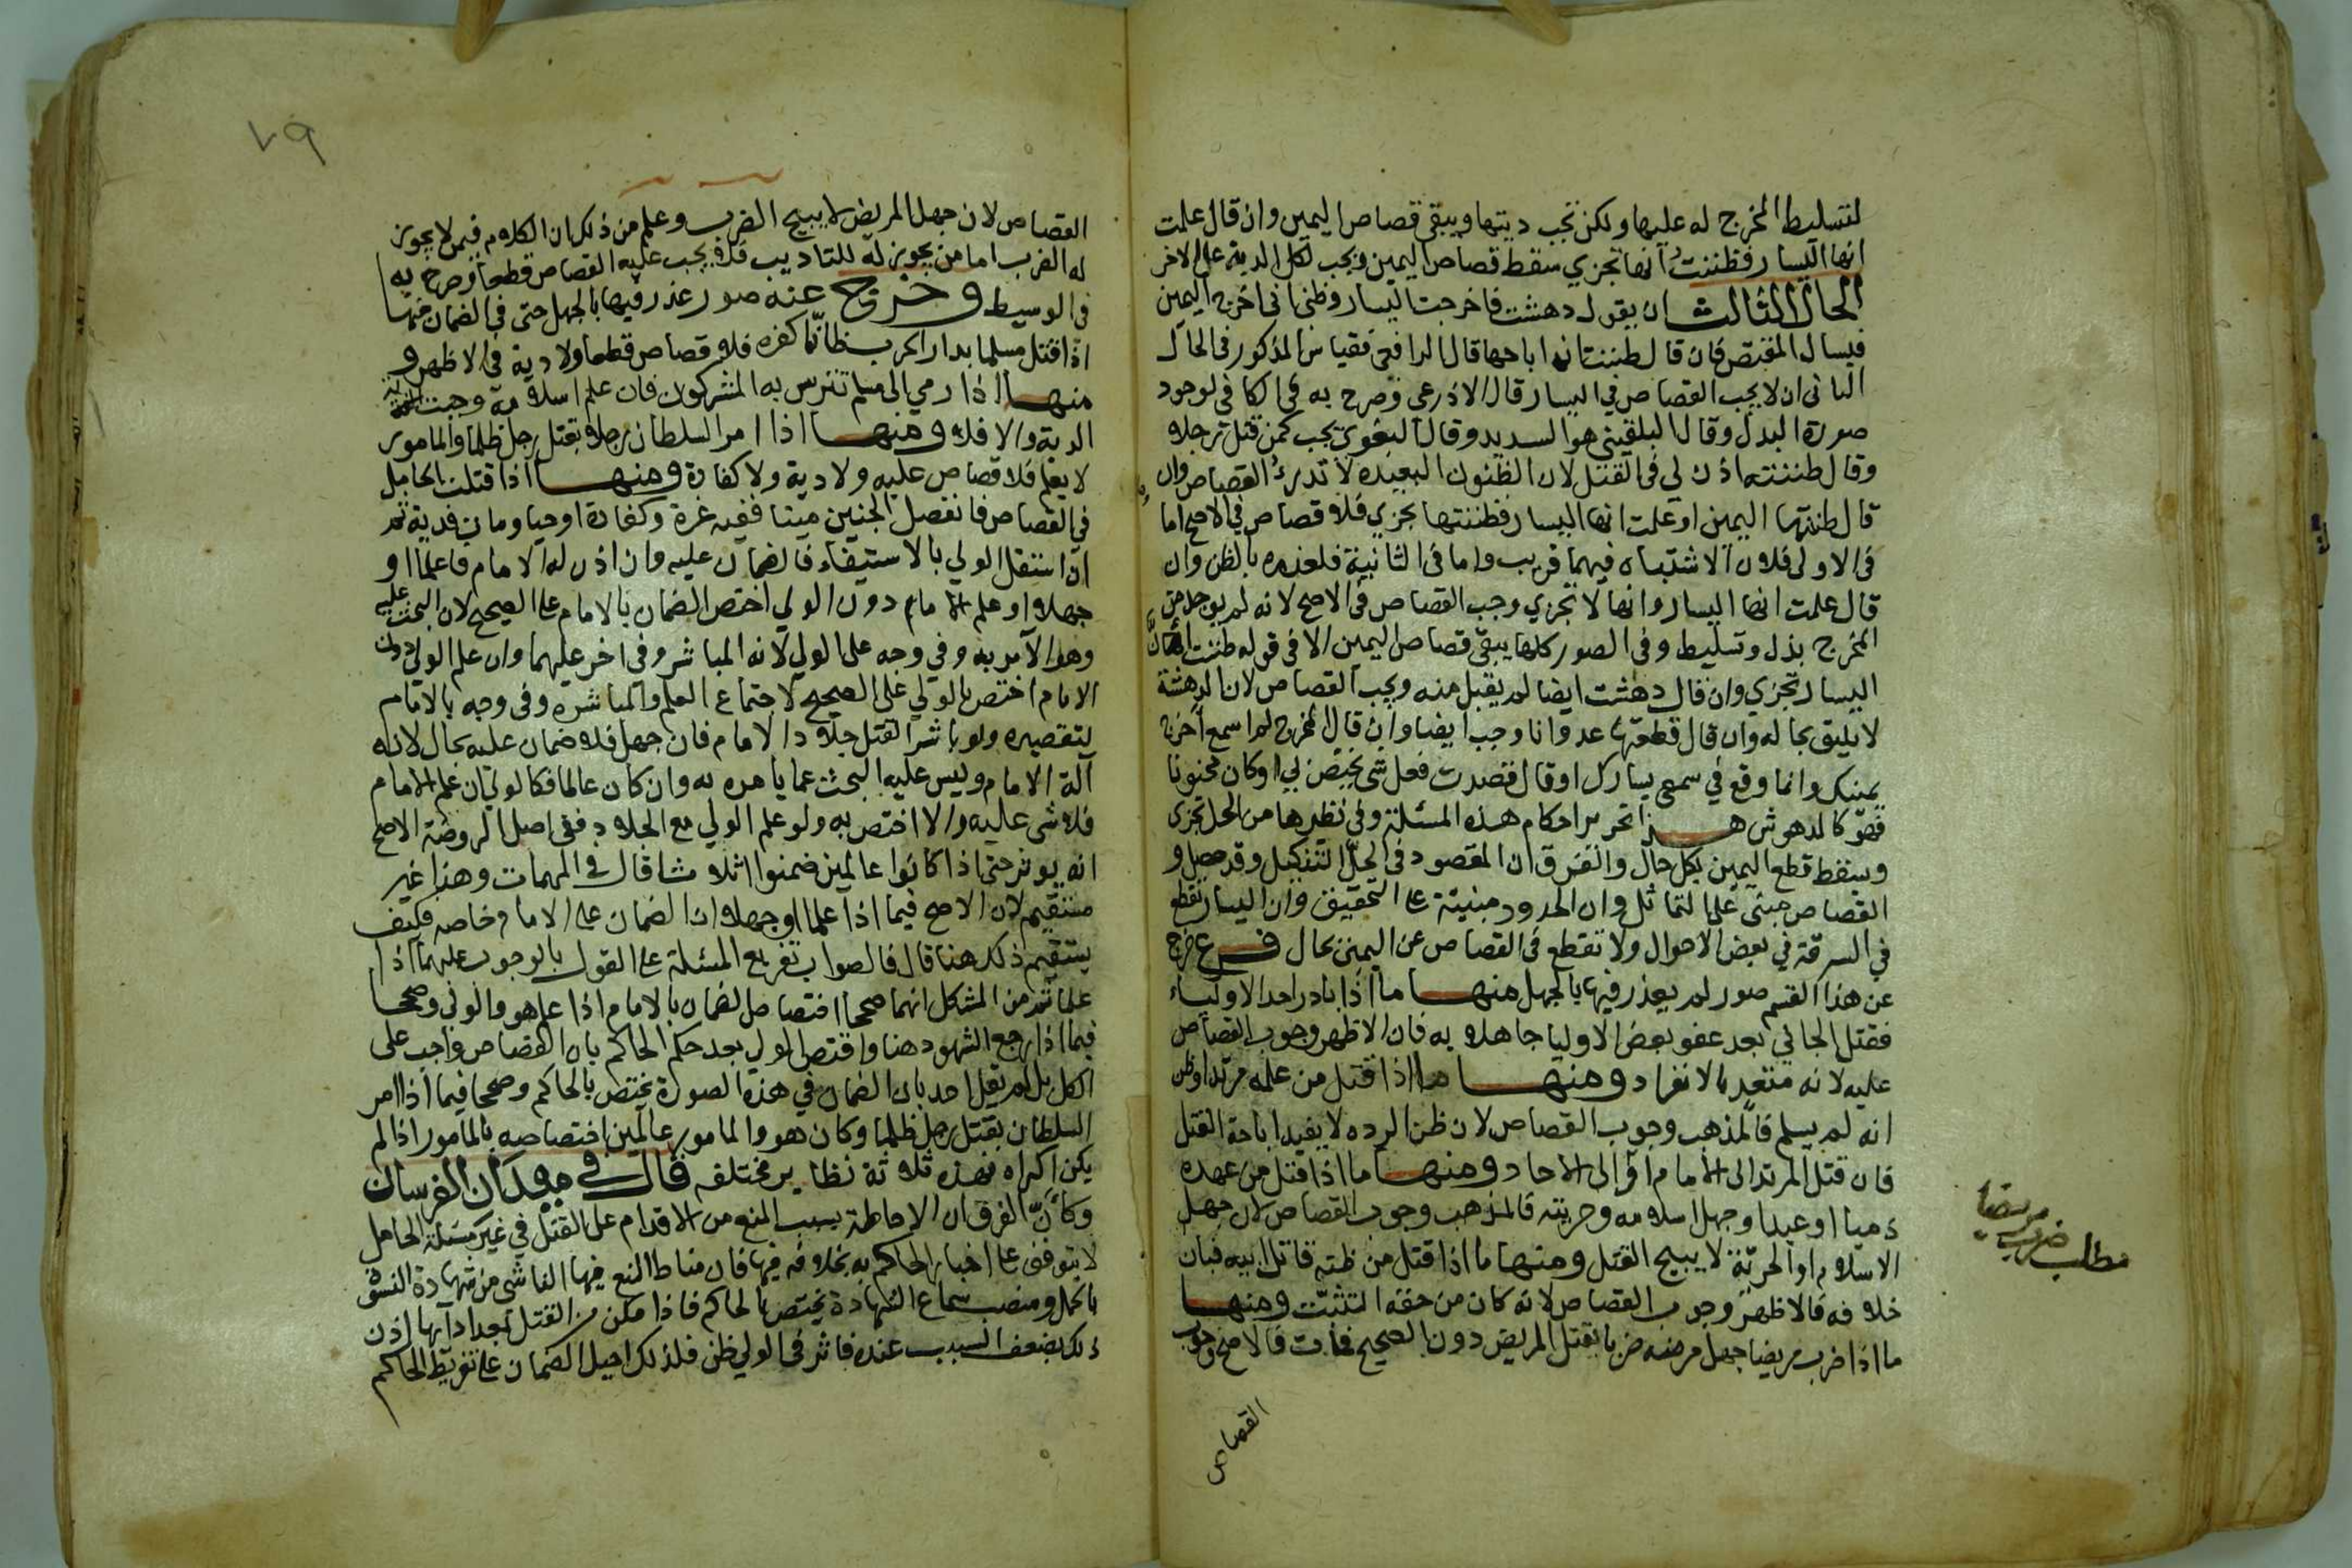 لتسليط المخرج له عليها ولكن تجب ديتها ويبقى قصاص اليمين وان قال علمت
انها اليسار فظننت انها تجزي سقط قصاص اليمين ويجب لكل الدية على الاخر
الحال الثالث ان يقول دهشت فاخرجت اليسار وظني اني اخرج اليمين
فيسال المقتص فان قال ظننت انه اباحها قال الرافعي فقياس المذكور في الحال
الثاني ان لا يجب القصاص في اليسار قال الاذرعي وصرح به في الكافي لوجود
صورة البدل وقال البلقيني هو السديد وقال البغوي يجب كمن قتل رجلا
وقال ظننته اذن لي في القتل لان الظنون البعيدة لا تدرء القصاص وان
قال ظننتها اليمين او علمت انها اليسار فظننتها تجزي فلا قصاص في الاصح اما
في الاولى فلان الاشتباه فيهما قريب واما في الثانية فلعذره بالظن وان
قال علمت انها اليسار وانها لا تجزي وجب القصاص في الاصح لانه لم يوجد من
المخرج بذل وتسليط وفي الصور كلها يبقى قصاص اليمين الا في قوله ظننت ان
اليسار تجزي وان قال دهشت ايضا لم يقبل منه ويجب القصاص لان الدهشة
لا يليق بحاله وان قال قطعتها عدوانا وجب ايضا وان قال المخرج لم اسمع اخرج
يمينك وانما وقع في سمعي يسارك او قال قصدت فعل شي يختص بي او كان مجنونا
فهو كالمدهوش هذا تحرير احكام هذه المسئلة وفي نظيرها من الحد تجزي
ويسقط قطع اليمين بكل حال والفرق ان المقصود في الحد التنكيل وقد حصل و
القصاص مبني على التماثل وان الحدود مبنية على التخفيف وان اليسار تقطع
في السرقة في بعض الاحوال ولا تقطع في القصاص عن اليمين بحال فرع خرج
عن هذا القسم صور لم يعذر فيها بالجهل منها ما اذا بادر احد الاولياء
فقتل الجاني بعد عفو بعض الاوليا جاهلا به فان الاظهر وجوب القصاص
عليه لانه متعد بالانفراد ومنها ما اذا قتل من علمه مرتدا وظن
انه لم يسلم فالمذهب وجوب القصاص لان ظن الرده لا يفيد اباحة القتل
فان قتل المرتد الى الامام لا الى الاحاد ومنها ما اذا قتل من عهده
ذميا او عبدا وجهل اسلامه وحريته فالمذهب وجوب القصاص لان جهل
الاسلام او الحرية لا يبيح القتل ومنها ما اذا قتل من ظنه قاتل ابيه فبان
خلافه فالاظهر وجوب القصاص لانه كان من حقه التثبت ومنها
ما اذا ضرب مريضا جهل مرضه ضربا يقتل المريض دون الصحيح فمات فالاصح وجوب
القصاص
مطلب ضرب مريضا
٧٩
القصاص لان جهل المريض لا يبيح الضرب وعلم من ذلك ان الكلام فيمن لا يجوز
له الضرب اما من يجوز له للتاديب فلا يجب عليه القصاص قطعا وصرح به
في الوسيط وخرج عنه صور عذر فيها بالجهل حتى في الضمان منها
اذا قتل مسلما بدار الحرب ظانا كفره فلا قصاص قطعا ولا دية في الاظهر و
منها اذا رمي الى مسلم تترس به المشركون فان علم اسلامه وجبت
الدية والا فلا ومنها اذا امر السلطان رجلا بقتل رجل ظلما والمامور
لا يعلم فلا قصاص عليه ولا دية ولا كفارة ومنها اذا قتلت الحامل
في القصاص فانفصل الجنين ميتا ففيه غرة وكفارة او حيا ومات فدية ثم
ان استقل الولي بالاستيفاء فالضمان عليه وان اذن له الامام فاعلما او
جهلا او علم الامام دون الولي اختص الضمان بالامام على الصحيح لان البحث عليه
وهو الآمر به وفي وجه على الولي لانه المباشر وفي اخر عليهما وان علم الولي دون
الامام اختص بالولي على الصحيح لاجتماع العلم والمباشرة وفي وجه بالامام
لتقصيره ولو باشر القتل جلاد الامام فان جهل فلا ضمان عليه بحال لانه
آلة الامام وليس عليه البحث عما يامره به وان كان عالما فكالولي ان علم الامام
فلا شي عليه والا اختص به ولو علم الولي مع الجلاد ففي اصل الروضة الاصح
انه يوثر حتى اذا كانوا عالمين ضمنوا اثلاثا قال في المهمات وهذا غير
مستقيم لان الاصح فيما اذا علما او جهلا ان الضمان على الامام خاصه فكيف
يستقيم ذلك هنا قال فالصواب تفريع المسئلة على القول بالوجوب عليهما اذا
علما ثم من المشكل انهما صححا اقتصاص الضمان بالامام اذا علم هو والولي وصححا
فيما اذا رجع الشهود هنا واقتص الولي بعد حكم الحاكم بان القصاص واجب على
الكل بل لم يقل احد بان الضمان في هذه الصورة يختص بالحاكم وصححا فيما اذا امر
السلطان بقتل رجل ظلما وكان هو والمامور عالمين اختصاصه بالمامور اذا لم
يكن اكراه فهذه ثلاثة نظاير مختلفه قال في ميدان الفرسان
وكأن الفرق ان الاحاطة بسبب المنع من الاقدام على القتل في غير مسئلة الحامل
لا يتوقف على اخبار الحاكم به بخلافه فيها فان مناط المنع فيها الناشي من شهادة النسوة
بالحمل ومنصب سماع الشهادة يختص بالحاكم فاذا مكن من القتل بعد ادآئها اذن
ذلك بضعف السبب عنده فاثر في الولي ظن فلذلك احيل الضمان على تفريط الحاكم